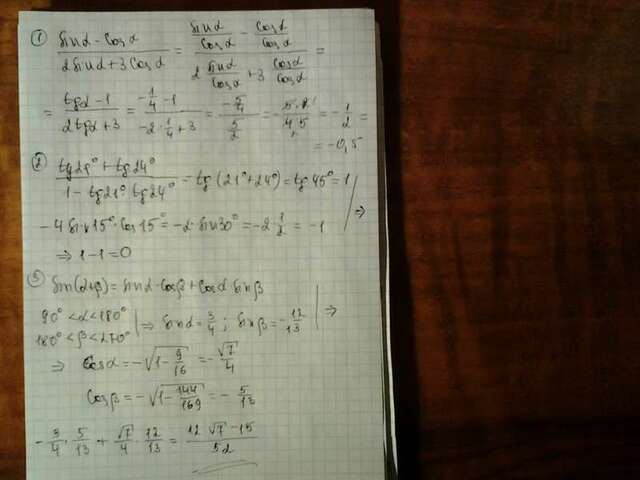 ① (sinα - cosα)/(2sinα + 3cosα) = (sinα/cosα - cosα/cosα)/(2 sinα/cosα + 3 cosα/cosα) =
= (tgα - 1)/(2tgα + 3) = (-1/4 - 1)/(-2·1/4 + 3) = = -1/2 =
= -0,5
② (tg21° + tg24°)/(1 - tg21°·tg24°) = tg(21° + 24°) = tg45° = 1
-4 sin15°·cos15° = -2·sin30° = -2·1/2 = -1 | ⇒
⇒ 1 - 1 = 0
③ sin(α+β) = sinα·cosβ + cosα·sinβ
90° < α < 180°
180° < β < 270° | ⇒ sinα = 3/4 ; sinβ = -12/13 | ⇒
⇒ cosα = -√(1 - 9/16) = -√7/4
cosβ = -√(1 - 144/169) = -5/13
-3/4·5/13 + √7/4·12/13 = (12√7 - 15)/52